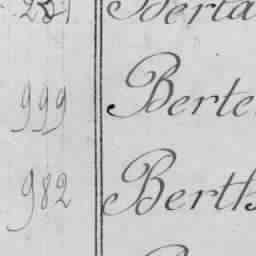 Berta
999 Berte
982 Berth